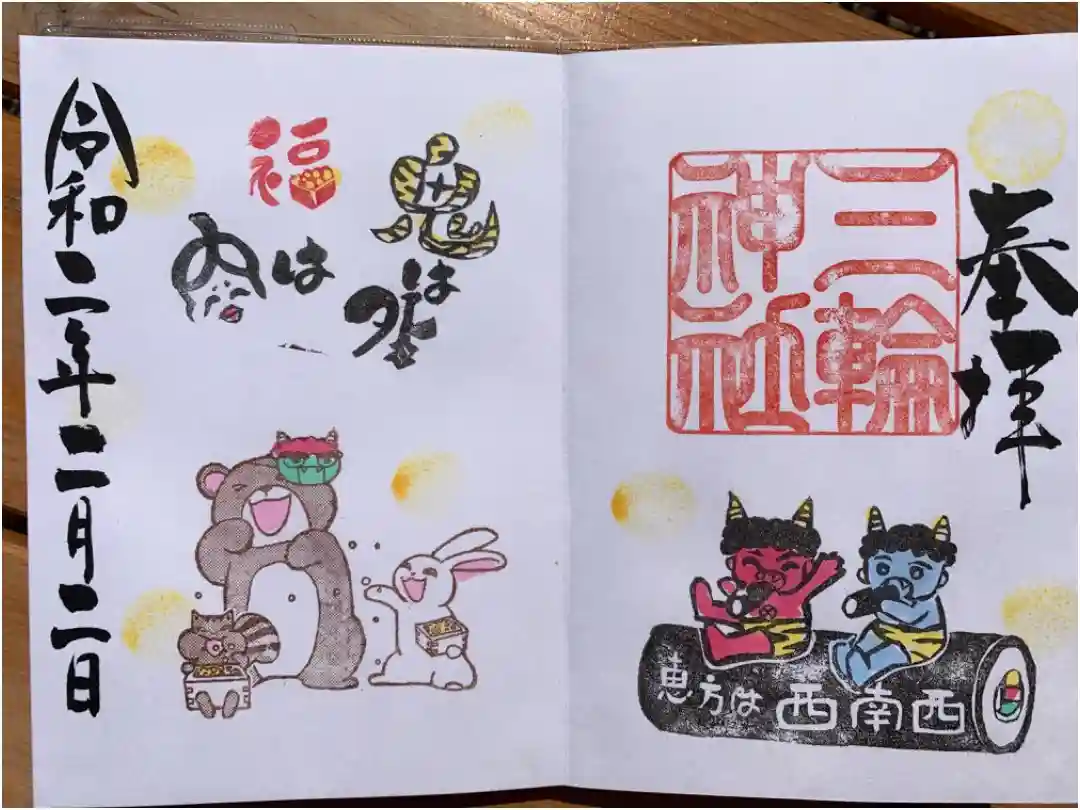 奉拝
三輪
神社
恵方は西南西
鬼は外
福は内
令和二年二月二日